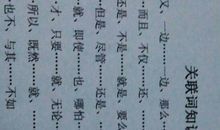 关联词知
又、一边……一边、那么……
而且、不仅……还……
还是、不是……就是、要么
但是、尽管……还是……
就、即使……也、哪怕
才、只要……就、无论
所以、既然……就……
也不、与其……不如